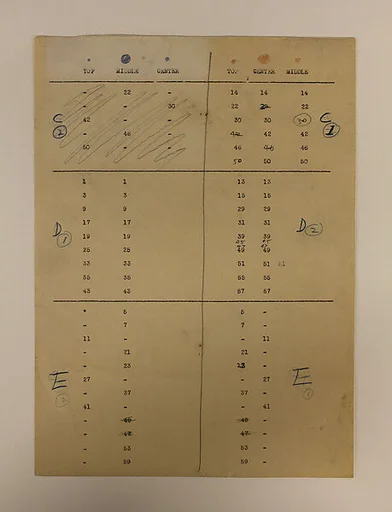 TOP MIDDLE CENTER TOP CENTER MIDDLE
- 22 - 14 14 14
- - 30 22 22 22
42 - - 30 30 30
- 46 - 42 42 42
50 - - 46 46 46
50 50 50
C 2 C 1
1 1 13 13
3 3 15 15
9 9 29 29
17 17 31 31
19 19 39 39
25 25 49 49
33 33 51 51 51
35 35 55 55
43 43 57 57
D 1 D 2
5 5 -
- 7 - -
11 - - 11
- 21 21 -
- 23 -
27 - - 27
- 37 37 -
41 - - 41
- 45 45 -
- 47 47 -
- 53 53 -
- 59 59 -
E E